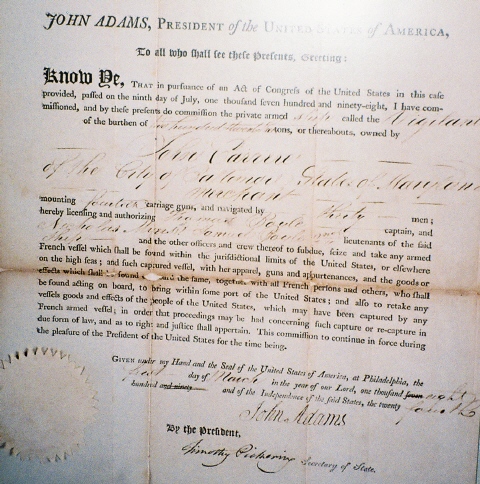 JOHN ADAMS, PRESIDENT of the UNITED STATES of AMERICA,
To all who shall see these Presents, Greeting:
Know Ye, THAT in pursuance of an Act of Congress of the United States in this case
provided, passed on the ninth day of July, one thousand seven hundred and ninety-eight, I have com-
missioned, and by these presents do commission the private armed called the Vigilant
of the burthen of hundred tons, or thereabouts, owned by
John Carrere
of the City of State of Maryland
Merchant
mounting fourteen carriage guns, and navigated by thirty men;
hereby licensing and authorizing captain, and
Nicholas lieutenants of the said
and the other officers and crew thereof to subdue, seize and take any armed
French vessel which shall be found within the jurisdictional limits of the United States, or elsewhere
on the high seas; and such captured vessel, with her apparel, guns and appurtenances, and the goods or
effects which shall be found on board the same, together with all French persons and others, who shall
be found acting on board, to bring within some port of the United States; and also to retake any
vessels goods and effects of the people of the United States, which may have been captured by any
French armed vessel; in order that proceedings may be had concerning such capture or re-capture in
due form of law, and as to right and justice shall appertain. This commission to continue in force during
the pleasure of the President of the United States for the time being.
GIVEN under my Hand and the Seal of the United States of America, at Philadelphia, the
first day of March in the year of our Lord, one thousand seven eight
hundred and ninety and of the Independence of the said States, the twenty fourth
John Adams
By the President,
Timothy Pickering Secretary of State.